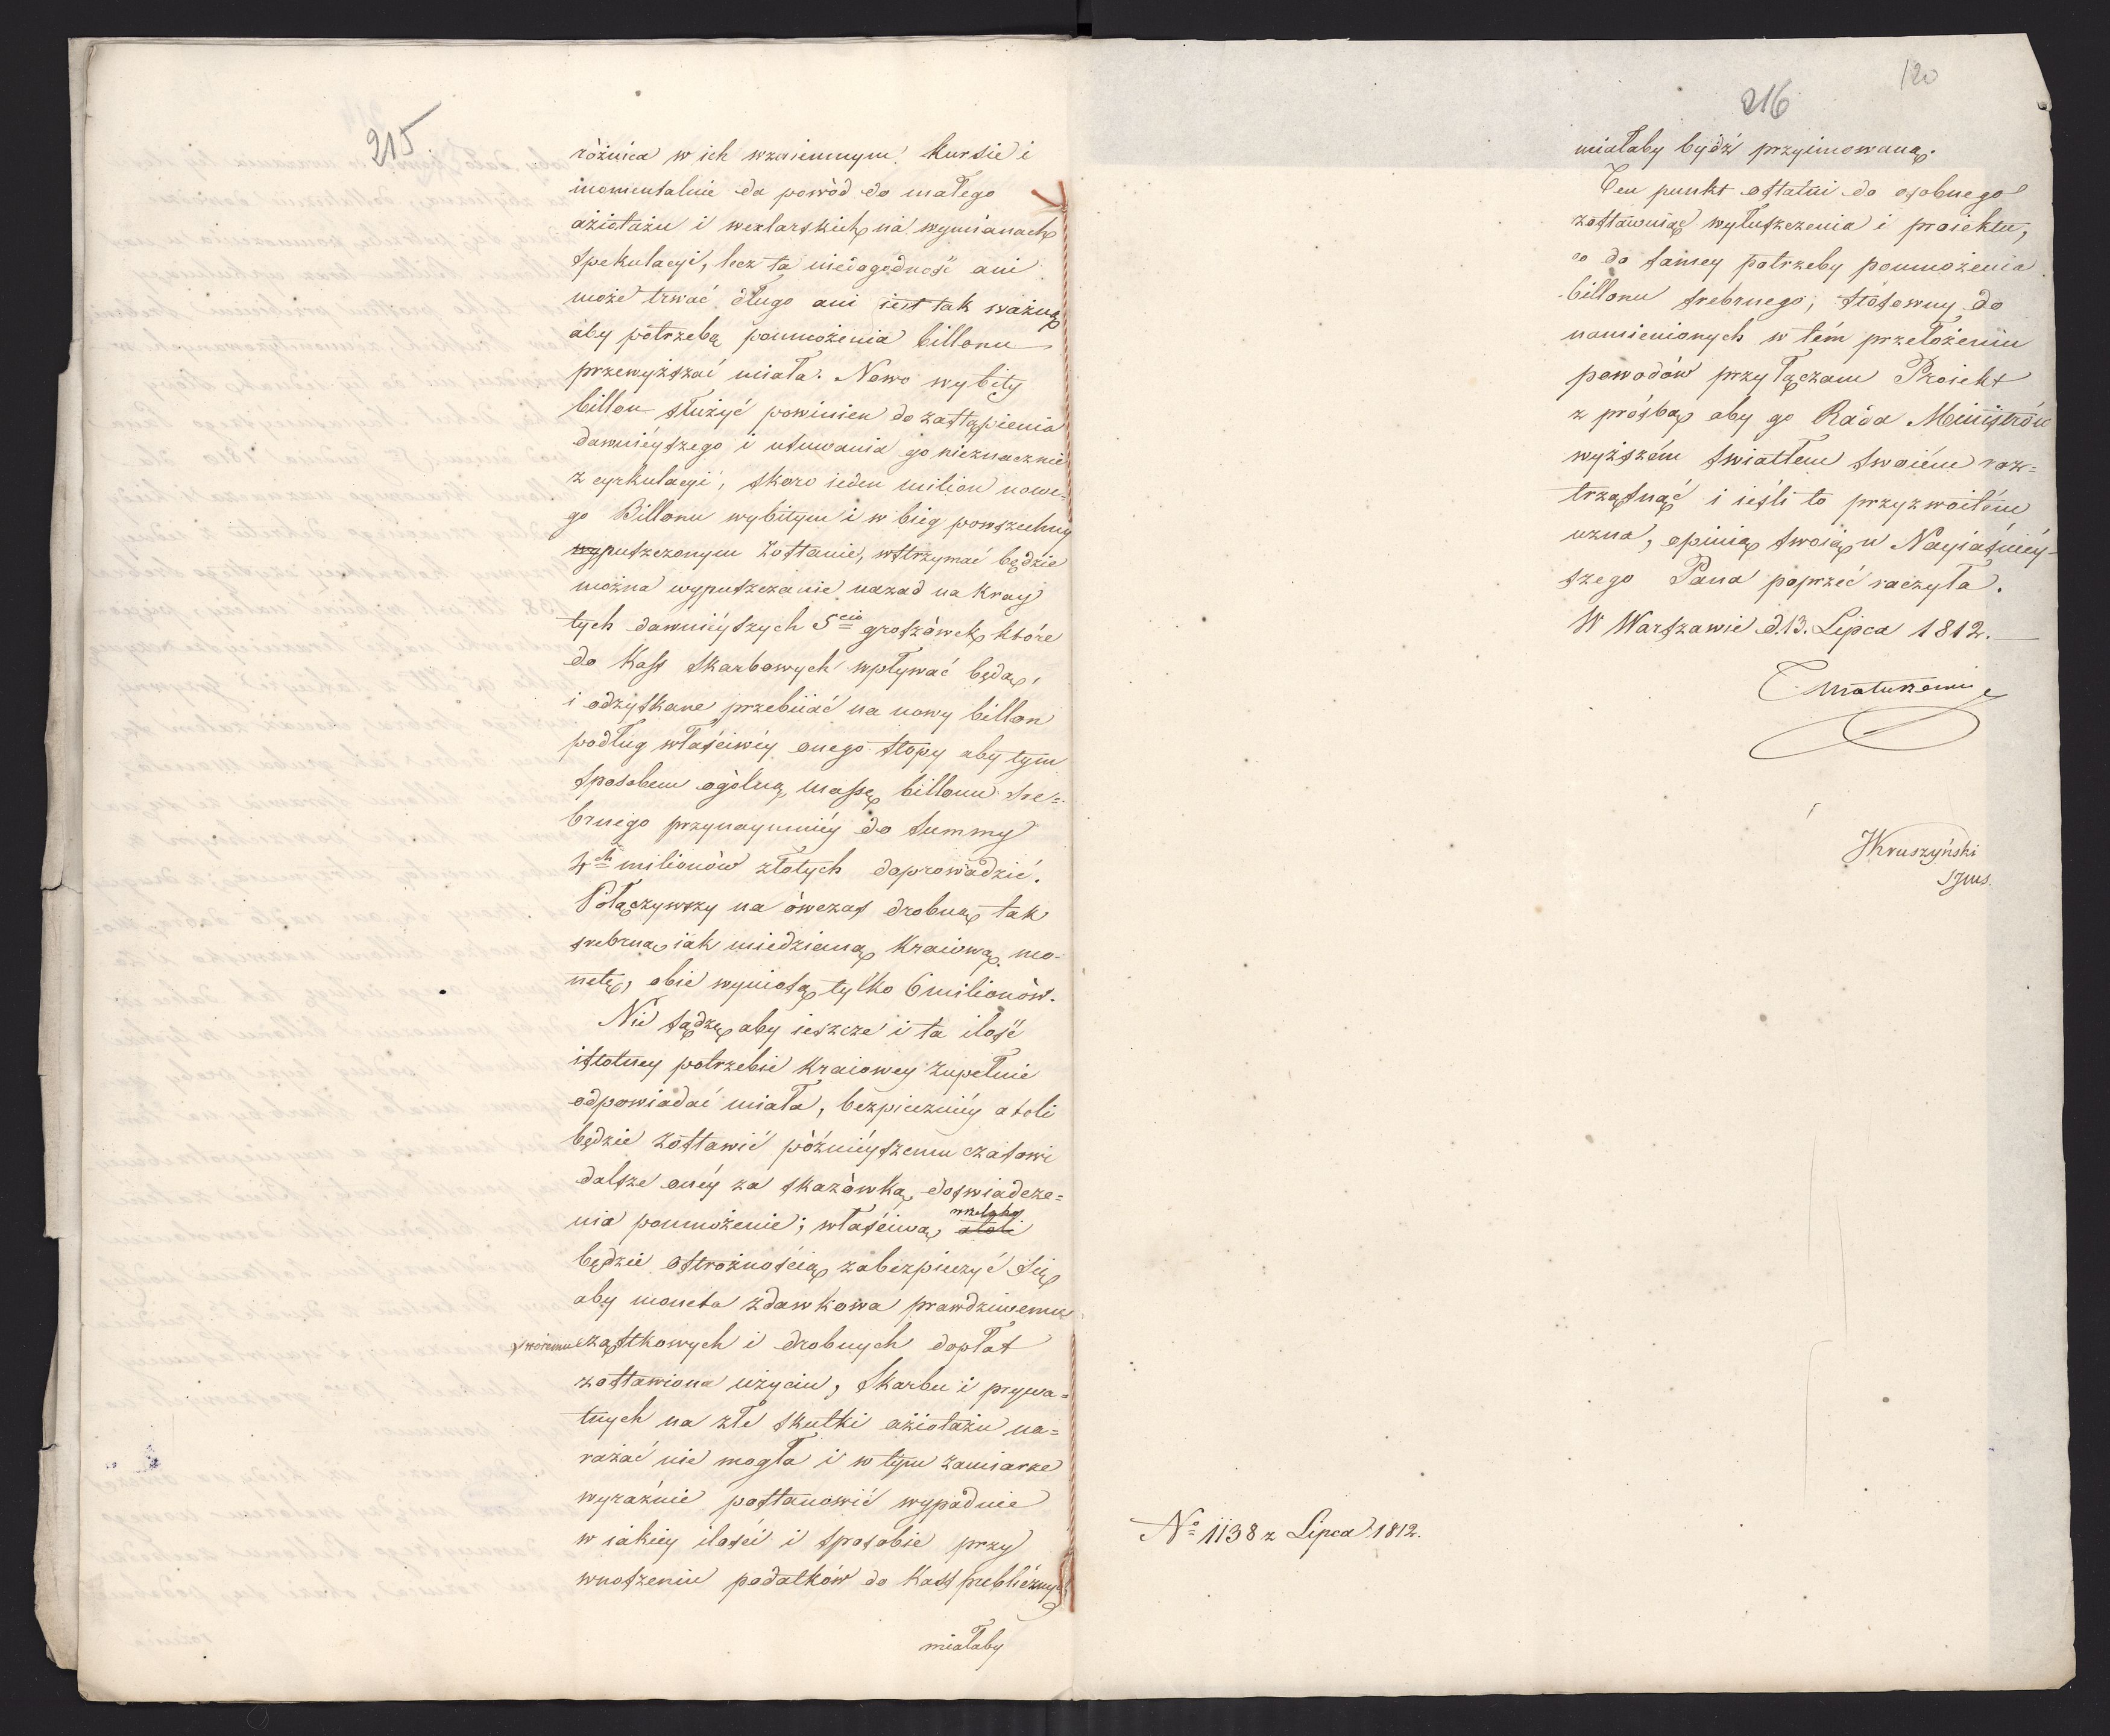 215
różnica w ich wzaiemnym kursie i
momentalnie da powód do małego
ażiotażu i wexlarskich na wymianach
spekulacyi, lecz ta niedogodność ani
może trwać długo ani iest tak ważną
aby potrzebą pomnożenia billonu
przewyższać miała. Nowo wybity
billon służyć powinien do zastąpienia
dawniéyszego i usuwania go nieznacznie
z cyrkulacyi, skoro ieden milion nowe=
go Billonu wybitym i w bieg powszechny
wypuszczonym zostanie, wstrzymać będzie
można wypuszczanie nazad na Kray
tych dawniéyszych 5cio groszówek które
do Kass skarbowych wpływać będą,
i odzyskane przebiiać na nowy billon
podług właściwéy onego stopy aby tym
sposobem ogólną massę billonu sre=
brnego przynaymniéy do summy
4ch milionów złotych doprowadzić.
Połączywszy na ówczas drobną tak
srebrną iak miedzianą Kraiową mo-
netę, obie wyniosą tylko 6 milionów.
Nie sądzę aby ieszcze i ta ilość
istotney potrzebie Kraiowey zupełnie
odpowiadać miała, bezpieczniéy atoli
będzie zostawić późniéyszemu czasowi
dalsze onéy za skazówką doswiadcze=
nia pomnożenie; właściwą atoli
będzie ostrożnością zabezpieczyć się
aby moneta zdawkowa prawdziwemu
swoiemu cząstkowych i drobnych dopłat
zostawiona użyciu, skarbu i prywa=
tnych na złe skutki ażiotażu na=
rażać nie mogła i w tym zamiarze
wyraźnie postanowić wypadnie
w iakiey ilości i sposobie przy
wnoszeniu podatków do Kass publicznych
miałaby
120
216
miałaby bydź przyimowaną.
Ten punkt ostatni do osobnego
zostawuiąc wyłuszczenia i proiektu,
co do samey potrzeby pomnożenia
billonu srebrnego, stosowny do
namienionych w tém przełożeniu
powodów przyłączam Proiekt
z prośbą aby go Rada Ministrów
wyższém swiatłem swoiém roz=
trząsnąć i ieśli to przyzwoitém
uzna, opinią swoią u Nayiaśniéy=
szego Pana poprzeć raczyła.
W Warszawie d. 13. Lipca 1812.
TMatuszewic
JKruszyński
No 1138 z Lipca 1812.